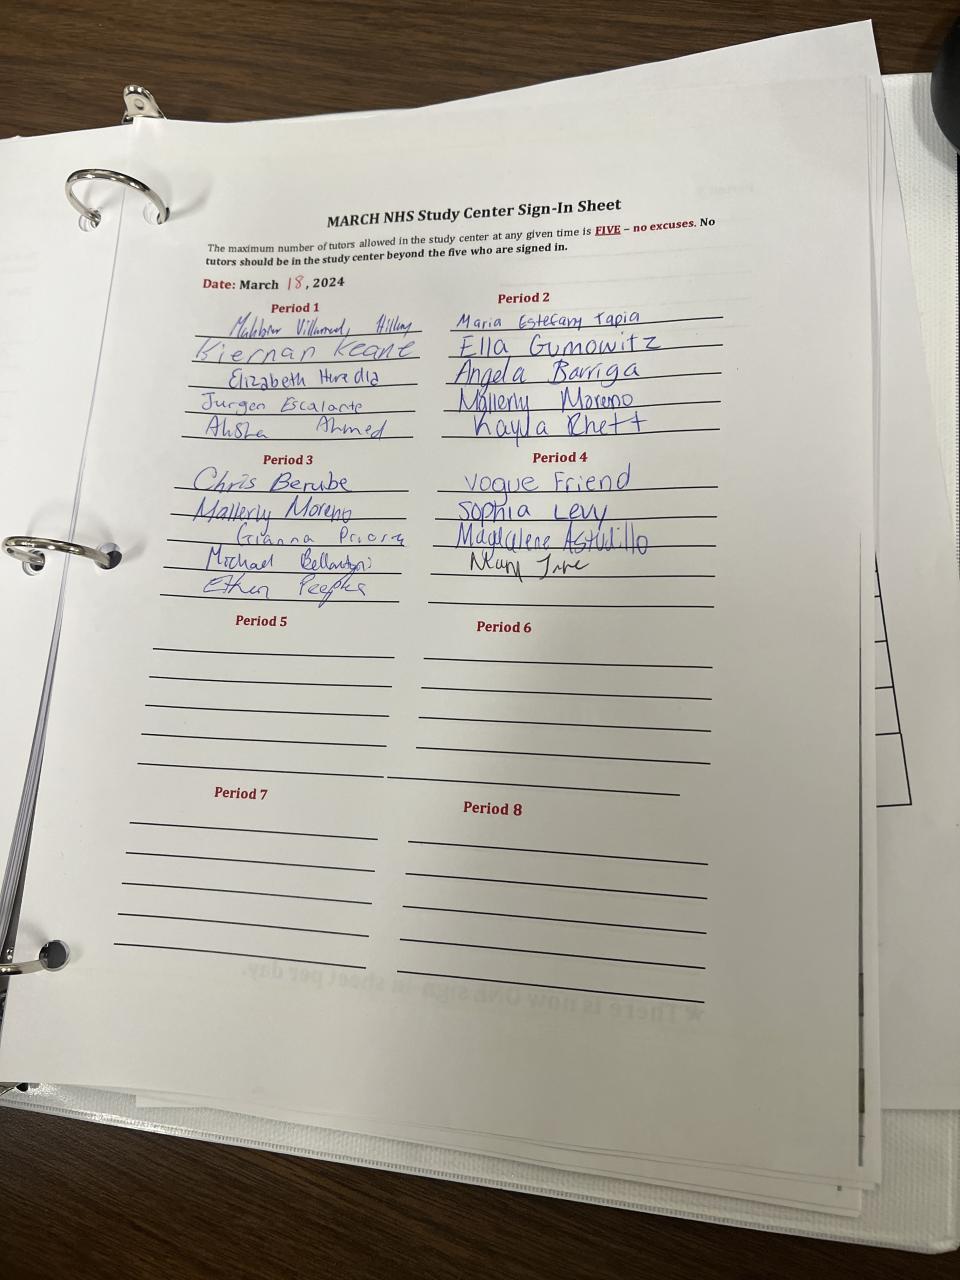 MARCH NHS Study Center Sign-In Sheet
The maximum number of tutors allowed in the study center at any given time is FIVE – no excuses. No
tutors should be in the study center beyond the five who are signed in.
Date: March 18, 2024
Period 1
Kiernan Keane
Elizabeth Heredia
Jurgen Escalante
Alisha Ahmed
Period 2
Maria Estefany Tapia
Ella Gumowitz
Angela Barriga
Mallerly Moreno
Kayla Rhett
Period 3
Chris Berube
Mallerly Moreno
Gianna
Michael
Ethan
Period 4
Vogue Friend
Sophia Levy
Magdalene Astudillo
Period 5
Period 6
Period 7
Period 8
★There is now ONE sign-in sheet per day.